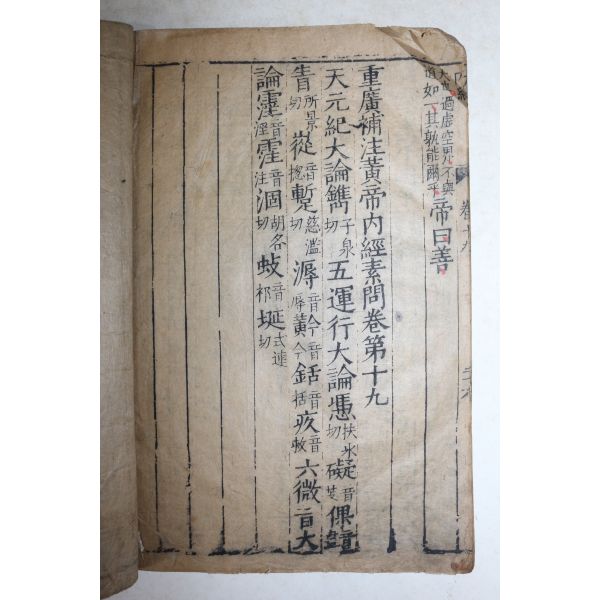 道如一其孰能爾乎帝曰善
重廣補注黃帝内經素問卷第十九
天元紀大論鐫子泉切五運行大論憑扶冰切礙音
眚所景切蓯音揔蹔慈濫切溽音辱黅音今銛音括疚音救六微旨大
論霪音淫霔音注涸胡各切蚑音祁埏式連切